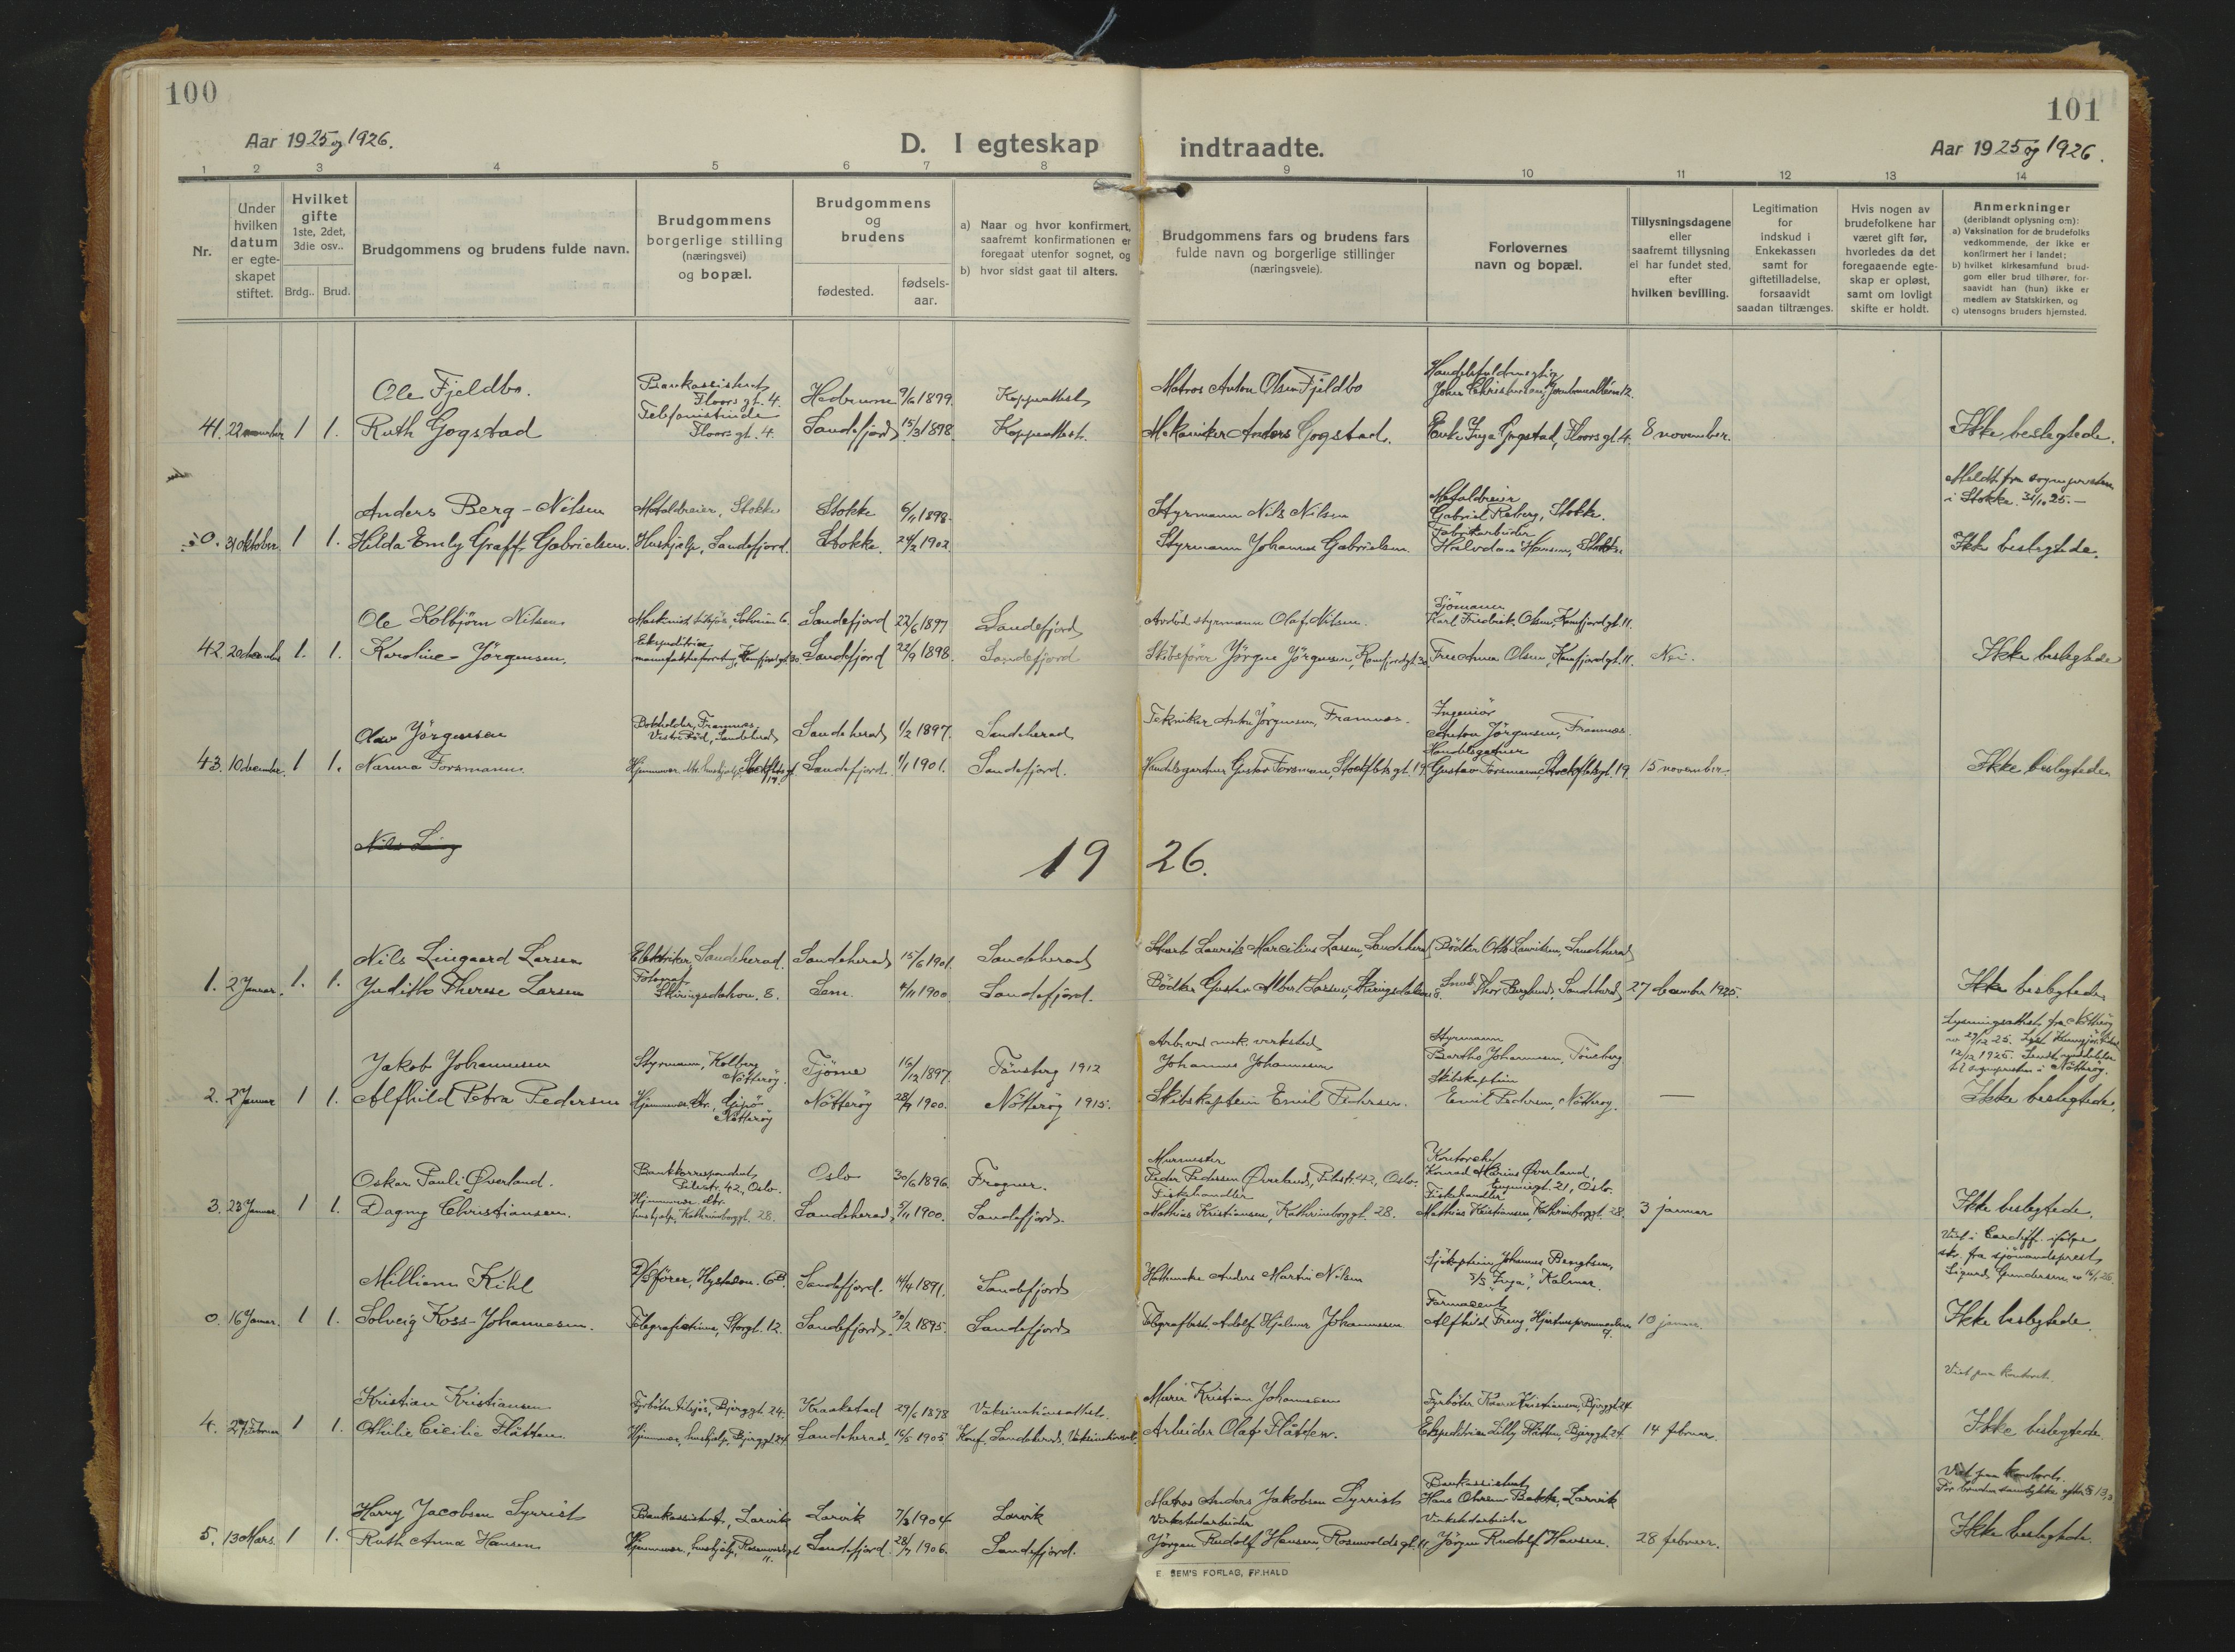 100
101
Aar 1925 og 1926.
D. I egteskap indtraadte.
Aar 1925 og 1926.
1 2 3 4 5 6 7 8 9 10 11 12 13 14
Nr.
Under hvilken datum er egte-skapet stiftet.
Hvilket gifte 1ste, 2det, 3die osv..
Brdg.. Brud.
Brudgommens og brudens fulde navn.
Brudgommens borgerlige stilling (næringsvei) og bopæl.
Brudgommens og brudens
fødested.
fødsels-aar.
a) Naar og hvor konfirmert, saafremt konfirmationen er foregaat utenfor sognet, og
b) hvor sidst gaat til alters.
Brudgommens fars og brudens fars fulde navn og borgerlige stillinger (næringsveie).
Forlovernes navn og bopæl.
Tillysningsdagene eller saafremt tillysning ei har fundet sted, efter hvilken bevilling.
Legitimation for indskud i Enkekassen samt for giftetilladelse, forsaavidt saadan tiltrænges.
Hvis nogen av brudefolkene har været gift før, hvorledes da det foregaaende egte-skap er opløst, samt om lovligt skifte er holdt.
Anmerkninger (deriblandt oplysning om):
a) Vaksination for de brudefolks vedkommende, der ikke er konfirmert her i landet;
b) hvilket kirkesamfund brud-gom eller brud tilhører, for-saavidt han (hun) ikke er medlem av Statskirken, og
c) utensogns bruders hjemsted.
Ole Fjeldbo. Bankassistent Floors gt. 4. Hedrum 9/6 1899. Koppeattest Matros Anton Olsen Fjeldbo Handelsfuldmegtig Johan Christensen, Jernbanealleen 12.
41. 22 november 1 1. Ruth Gogstad Telefonistinde Floors gt. 4. Sandefjord 15/3 1898. Koppeattest. Mekaniker Anders Gogstad. Enke Inga Gogstad, Floors gt. 4. 8 november. Ikke beslegtede.
Meldt fra sognepresten i Stokke 31/10 25. —
Anders Berg-Nilsen Metaldreier, Stokke Stokke 6/11 1898. Styrmann Nils Nilsen Metaldreier Gabriel Raberg, Stokke.
0. 31 oktober. 1 1. Hilda Emly Graff Gabrielsen. Hushjelp, Sandefjord. Stokke. 24/2 1902. Styrmann Johannes Gabrielsen. Fabrikarbeider Halvdan Hansen, Stokke. Ikke beslegtede.
Ole Kolbjørn Nilsen Maskinist tilsjøs, Solveien 6. Sandefjord 22/6 1897 Sandefjord Avdød styrmann Olaf Nilsen. Sjømann Karl Fredrik Olsen, Kamfjordgt. 11.
42. 20 december 1. 1. Karoline Jörgensen. Ekspeditrice manufakturforretning, Kamfjordgt. 30. Sandefjord 22/9 1898. Sandefjord Skibsfører Jörgen Jörgensen, Kamfjordgt. 30. Fru Anna Olsen, Kamfjordgt. 11. Nei. Ikke beslegtede
Olav Jörgensen Bokholder, Framnæs. Vestre Rød, Sandeherad Sandeherad 1/2 1897. Sandeherad Tekniker Anton Jörgensen, Framnæs. Ingeniör Anton Jörgensen, Framnæs.
43. 10 december. 1 1. Nanna Forsmann. Hjemmevær. dtr. hushjelp, Stockflets gt. 19. Sandefjord. 1/1 1901. Sandefjord. Handelsgartner Gustav Forsman, Stockflets gt. 19. Handelsgartner Gustav Forsmann, Stockfletsgt. 19. 15 november. Ikke beslegtede.
Nils Ling
19 26.
Nils Lingaard Larsen Elektriker, Sandeherad. Sandeherad 15/6 1901. Sandeherad Laurits Marcilius Larsen, Sandeherad Bödker Otto Lauritsen, Sandeherad
1. 2 Januar. 1. 1. Judith Therese Larsen Fotograf, Skiringsdahon. 8. Sem. 4/11 1900. Sandefjord. Bödker Gustav Albert Larsen, Thor Berglund, Sandeherad 27 december 1925. Ikke beslegtede
Lysningsattest fra Nötteröy av 29/12 25.
til sognepresten i Nötteröy.
Jakob Johannesen Styrmann, Kolberg Nötteröy. Tjöme 16/12 1897. Tönsberg 1912 Arb. ved mek. verksted Johannes Johannesen Styrmann Bartho Johannesen, Tönsberg
2. 2 Januar 1 1. Alfhild Petra Pedersen Hjemmevær. dtr., Gipö Nötteröy Nötteröy 28/9 1900. Nötteröy 1915. Skibskaptein Emil Pedersen. Skibskaptein Emil Pedersen, Nötteröy. — Ikke beslegtede.
Oskar Pauli Øverland. Bankkorrespondent, Pilestr. 42, Oslo. Oslo 30/6 1896. Frogner. Murmester Peder Pedersen Øverland, Pilestr. 42, Oslo. Kontorchef Konrad Marius Øverland, 21, Oslo.
3. 23 Januar 1 1. Dagny Christiansen. Hjemmevær. dtr. hushjelp, Kathrineborggt. 28. Sandeherad 5/11 1900. Sandefjord. Fiskehandler Mathias Kristiansen, Kathrineborggt. 28. Fiskehandler Mathias Kristiansen, Kathrineborggt. 28. 3 januar Ikke beslegtede.
Viet i Cardiff ifölge skr. fra sjömandsprest Sigurd Gundersen av 16/1 26.
Milliam Kihl D/S förer, Hystadvn. 6B. Sandefjord. 14/4 1891. Sandefjord Anders Martin Nilsen Sjökaptein Johannes Bengtsen, S/S "Inga", Kalmar.
0. 16 Januar. 1 1. Solveig Koss-Johannesen. Telegrafistinne, Storgt. 12. Sandefjord. 20/2 1895. Sandefjord Telegrafbest. Adolf Hjalmar Johannesen Farmaceut Alfhild Freng, Hjertnespromenaden 7. 10 januar. Ikke beslegtede.
Viet paa kontoret.
Kristian Kristiansen Fyrböter tilsjös, Bjerggt. 24. Kraakstad 29/6 1898 Vaksinationsattest. Murer Kristian Johannesen Fyrböter Kaare Kristiansen, Bjerggt. 24
4. 27 Februar 1 1. Othilie Cicilie Flåtten. Hjemmevær, hushjelp, Bjerggt. 24. Sandeherad. 16/5 1905 Konf. Sandeherad. Vaksinationsatt. Arbeider Olaf Flåtten. Ekspeditrise Lilly Flåtten, Bjerggt. 24. 14 februar. Ikke beslegtede.
Viet paa kontoret.
For bruden samtykke efter § 13,3
Harry Jacobsen Syrrist Bankassistent, Larvik Larvik 7/3 1904 Larvik Matros Anders Jakobsen Syrrist Bankassistent Hans Ohrsen Bakke, Larvik
5. 13 Mars. 1 1. Ruth Anna Hansen Hjemmevær. hushjelp, Rosenvoldsgt. 11. Sandefjord. 28/7 1906. Sandefjord. Verkstedarbeider Jörgen Rudolf Hansen, Rosenvolds gt. 11 Verkstedarbeider Jörgen Rudolf Hansen. 28 februar. Ikke beslegtede.
E. SEM'S FORLAG, FR.HALD